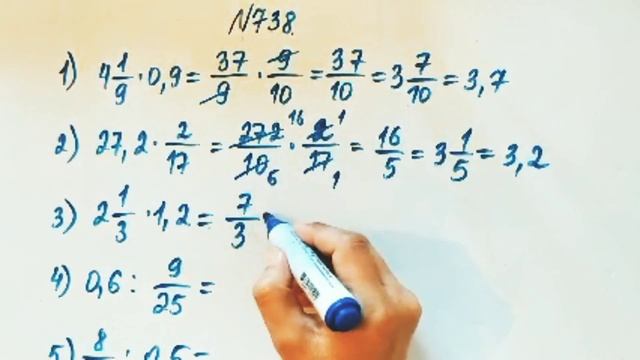 №738.
1) 4 1/9 · 0,9 = 37/9 · 9/10 = 37/10 = 3 7/10 = 3,7
2) 27,2 · 2/17 = 272 16/10 5 · 2 1/17 1 = 16/5 = 3 1/5 = 3,2
3) 2 1/3 · 1,2 = 7/3
4) 0,6 : 9/25 =
5) 8